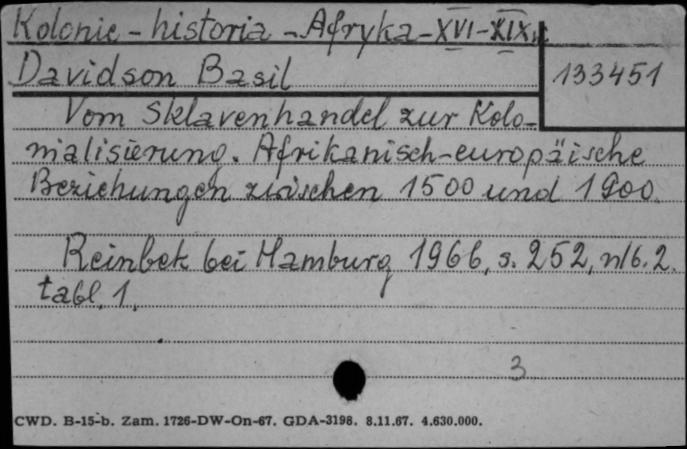 Kolonie - historia - Afryka - XVI-XIX w.
Davidson Basil
133451
Vom Sklavenhandel zur Kolo-
nialisierung. Afrikanisch-europäische
Beziehungen zwischen 1500 und 1900.
Reinbek bei Hamburg 1966, s. 252, nlb. 2.
tabl. 1.
3
CWD. B-15-b. Zam. 1726-DW-On-67. GDA-3198. 8.11.67. 4.630.000.